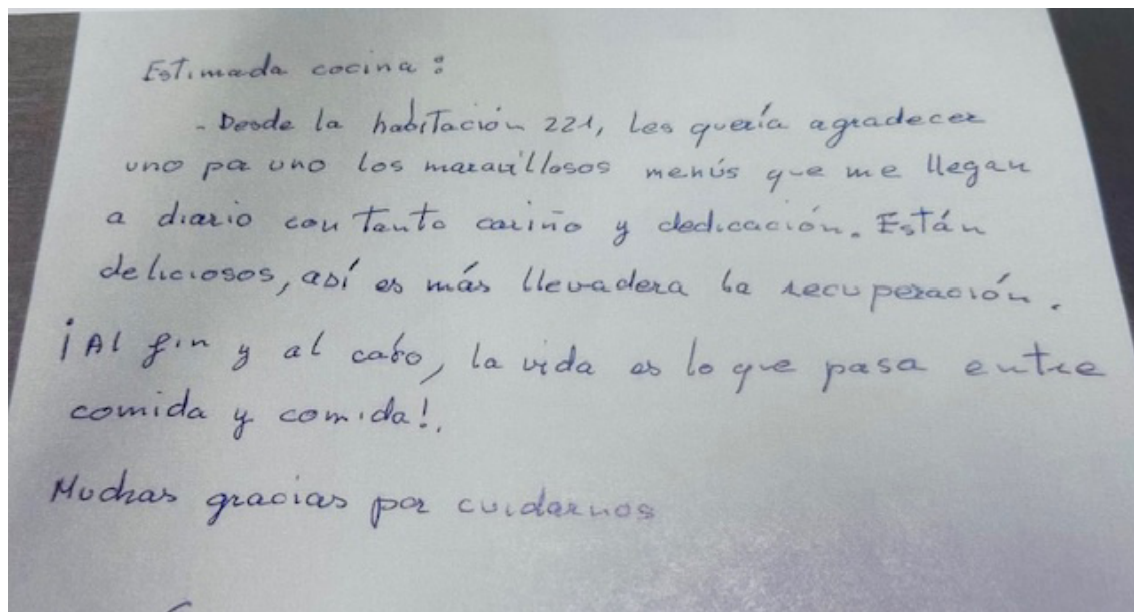 Estimada cocina:
- Desde la habitación 221, les quería agradecer
uno por uno los maravillosos menús que me llegan
a diario con tanto cariño y dedicación. Están
deliciosos, así es más llevadera la recuperación.
¡Al fin y al cabo, la vida es lo que pasa entre
comida y comida!.
Muchas gracias por cuidarnos